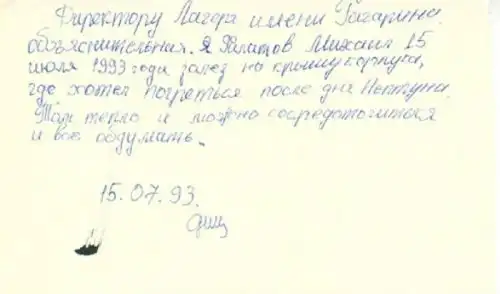 Директору Лагеря имени Гагарина.
объяснительная. Я Филатов Михаил 15
июля 1993 года залез на крышу корпуса,
где хотел погреться после дня Нептуна.
Там тепло и можно сосредоточиться
и все обдумать.
15.07.93.